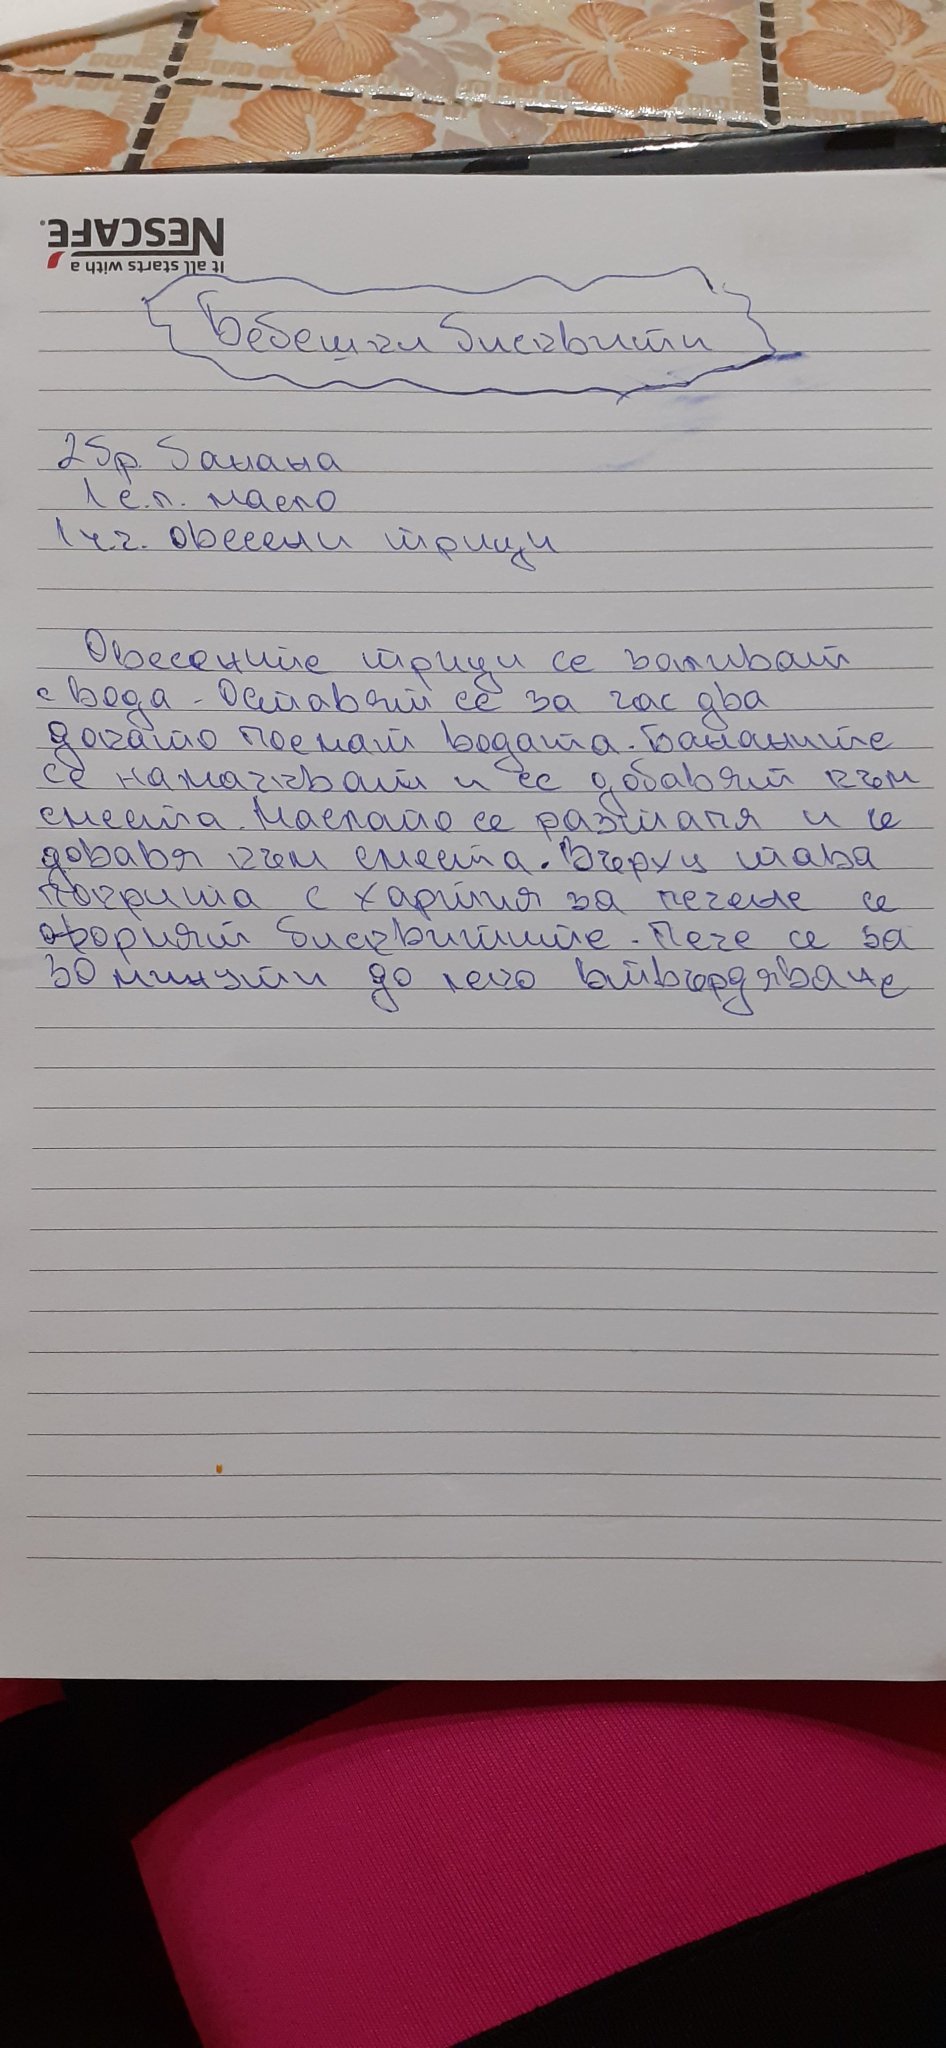 NESCAFÉ®
It all starts with a
Бебешки бисквити
2 бр. банана
1 с.л. масло
1 ч.ч. овесени трици
Овесените трици се заливат
с вода. Оставят се за час два
докато поемат водата. Бананите
се намачкват и се добавят към
сместа. Маслото се разтапя и се
добавя към сместа. Върху тава
покрита с хартия за печене се
оформят бисквитите. Пече се за
30 минути до леко втвърдяване